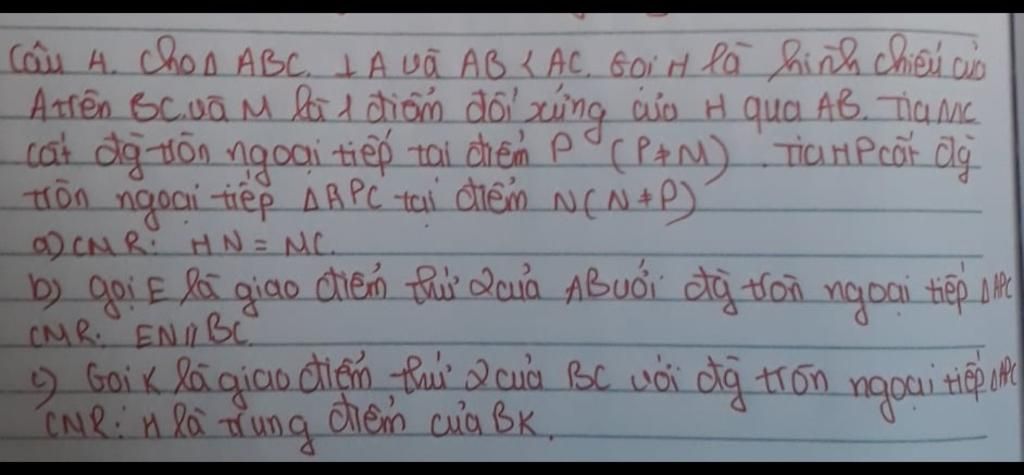 Câu 4. Cho Δ ABC. ⊥ A và AB < AC. Gọi H là hình chiếu của
A trên BC và M là 1 điểm đối xứng của H qua AB. Tia MC
cắt đg tròn ngoại tiếp tại điểm P (P ≠ M). Tia HP cắt đg
tròn ngoại tiếp Δ APC tại điểm N (N ≠ P)
a) CMR: HN = MC.
b) gọi E là giao điểm thứ 2 của AB với đg tròn ngoại tiếp Δ APC
CMR: EN // BC.
c) Gọi K là giao điểm thứ 2 của BC với đg tròn ngoại tiếp Δ APC
CMR: H là trung điểm của BK.